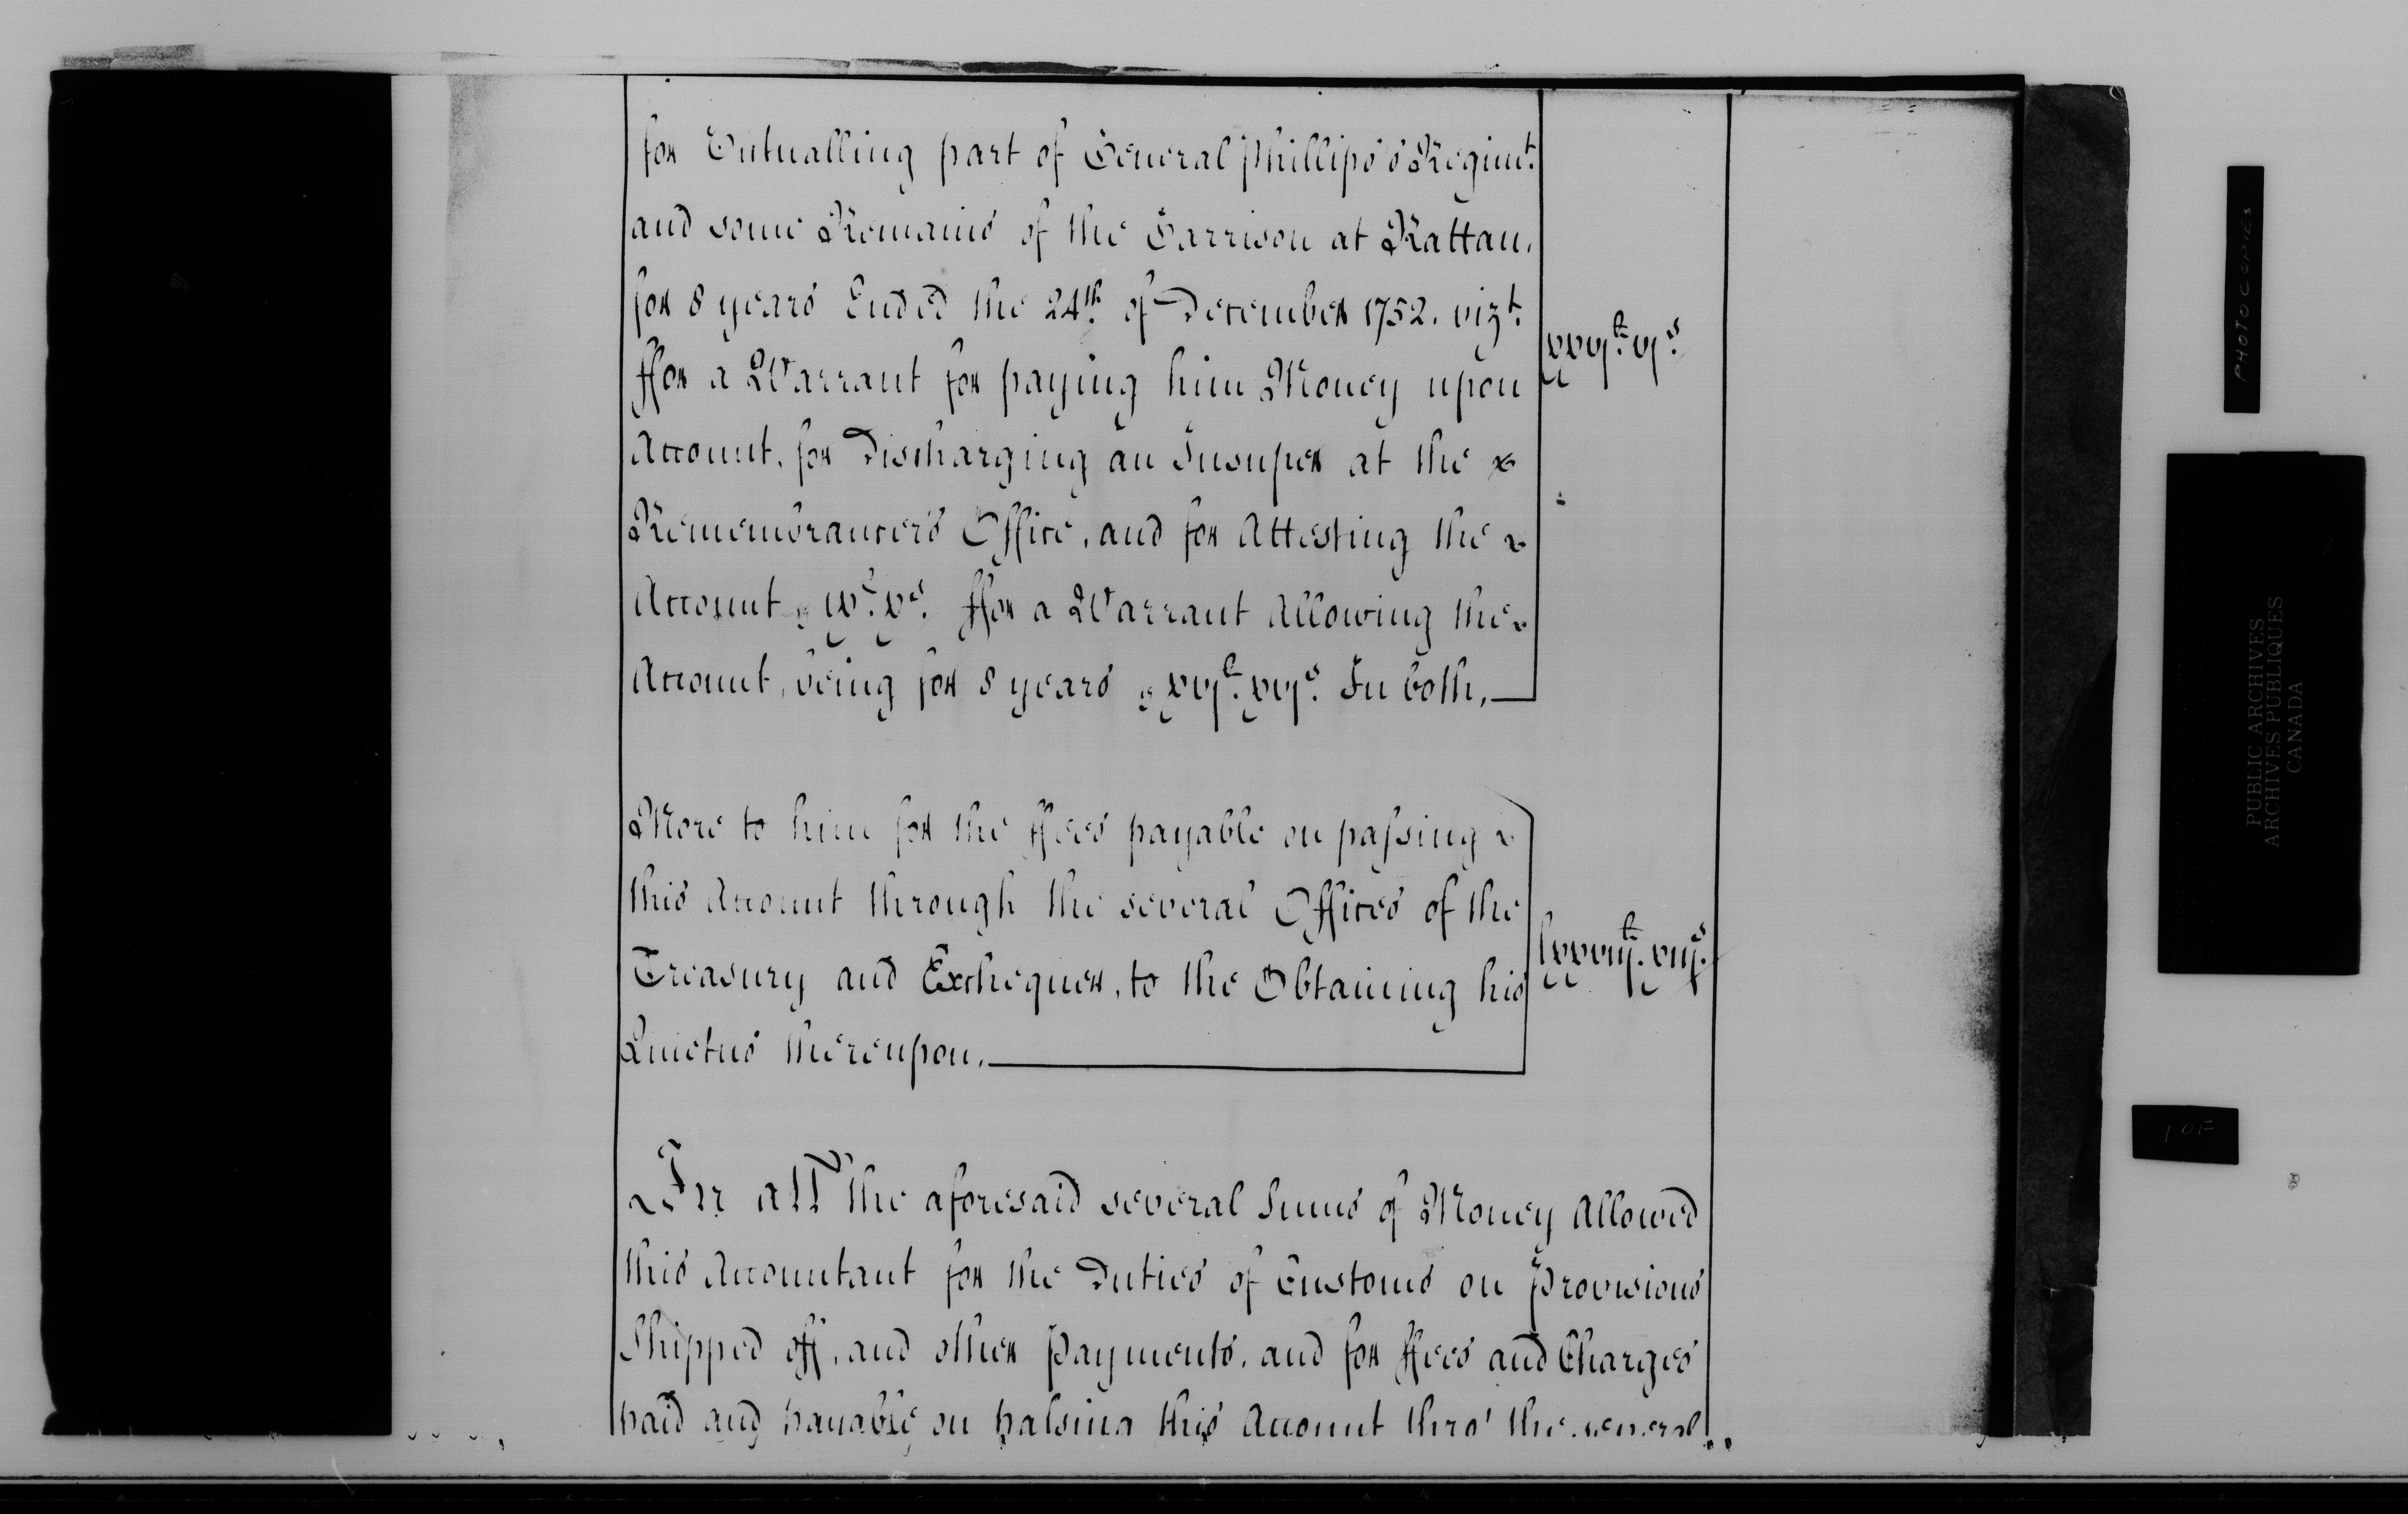 for Victualling part of General Phillips's Regimt.
and some Remains of the Garrison at Rattan,
for 8 years Ended the 24th. of December 1752. vizt.
ffor a Warrant for paying him Money upon
Account, for Discharging an Insuper at the
Remembrancer's Office, and for Attesting the
Account, ix£. xs. ffor a Warrant Allowing the
Account, being for 8 years, xvj£. xvjs. In both,
xxvj£. vjs.
More to him for the ffees payable on passing
this Account through the several Offices of the
Treasury and Exchequer, to the Obtaining his
Quietus thereupon.
lxxxviij£. viijs.
In all the aforesaid several Sums of Money Allowed
this Accountant for the Duties of Customs on Provisions
Shipped off, and other Payments, and for ffees and Charges
paid and payable on passing this Account thro' the several
PHOTOCOPIES
PUBLIC ARCHIVES
ARCHIVES PUBLIQUES
CANADA
1 OF